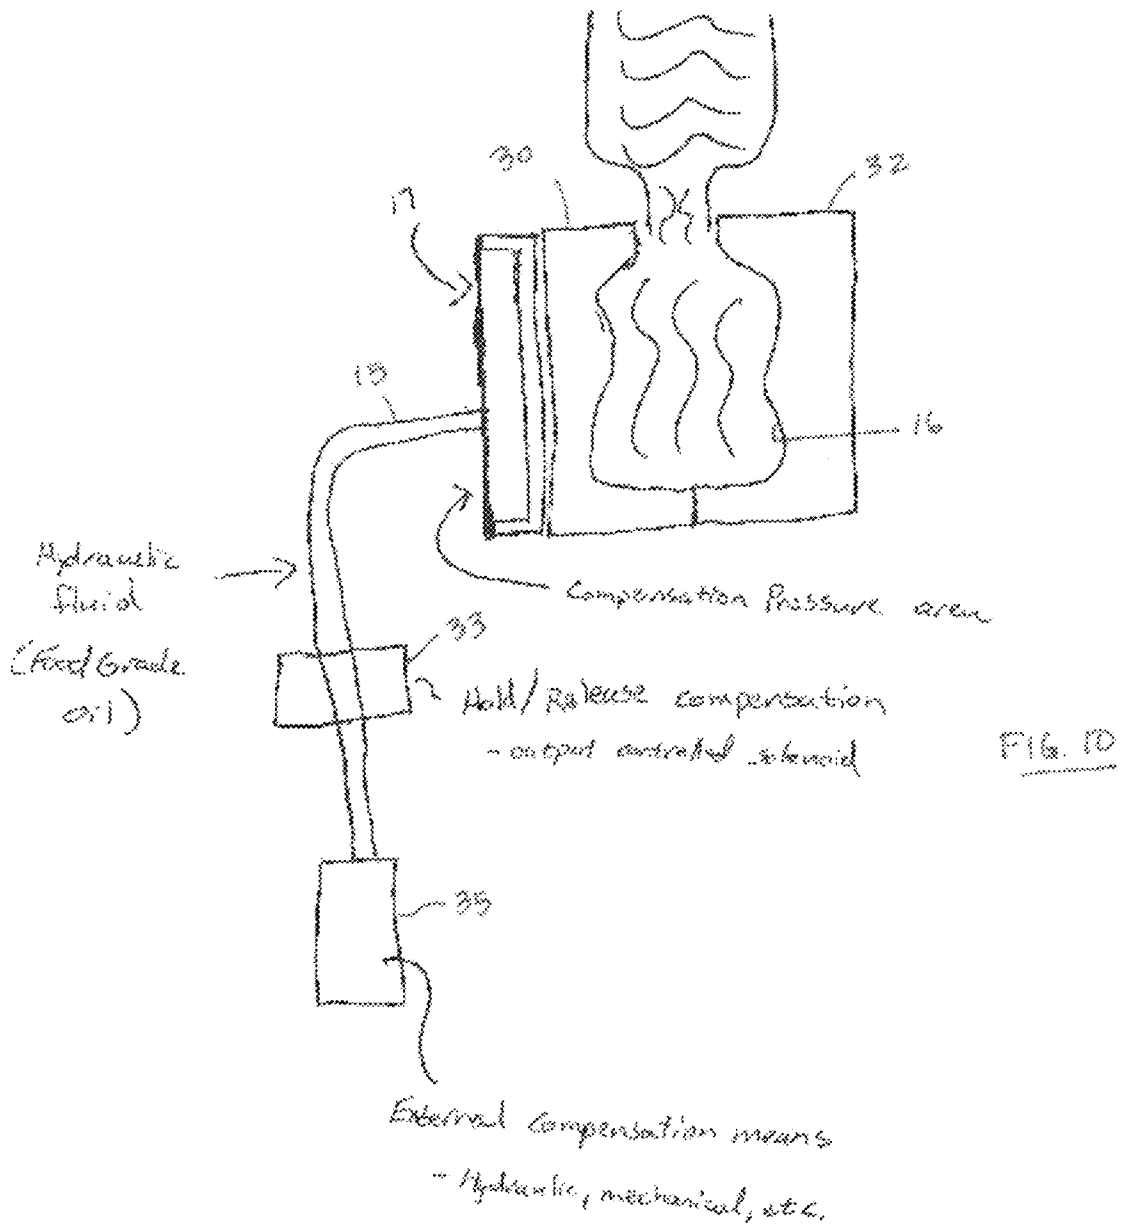 30
32
17
13
16
Hydraulic
fluid
(Food Grade
oil)
Compensation Pressure area
33
Hold/Release compensation
- output controlled solenoid
FIG. 10
35
External Compensation means
- Hydraulic, mechanical, etc.